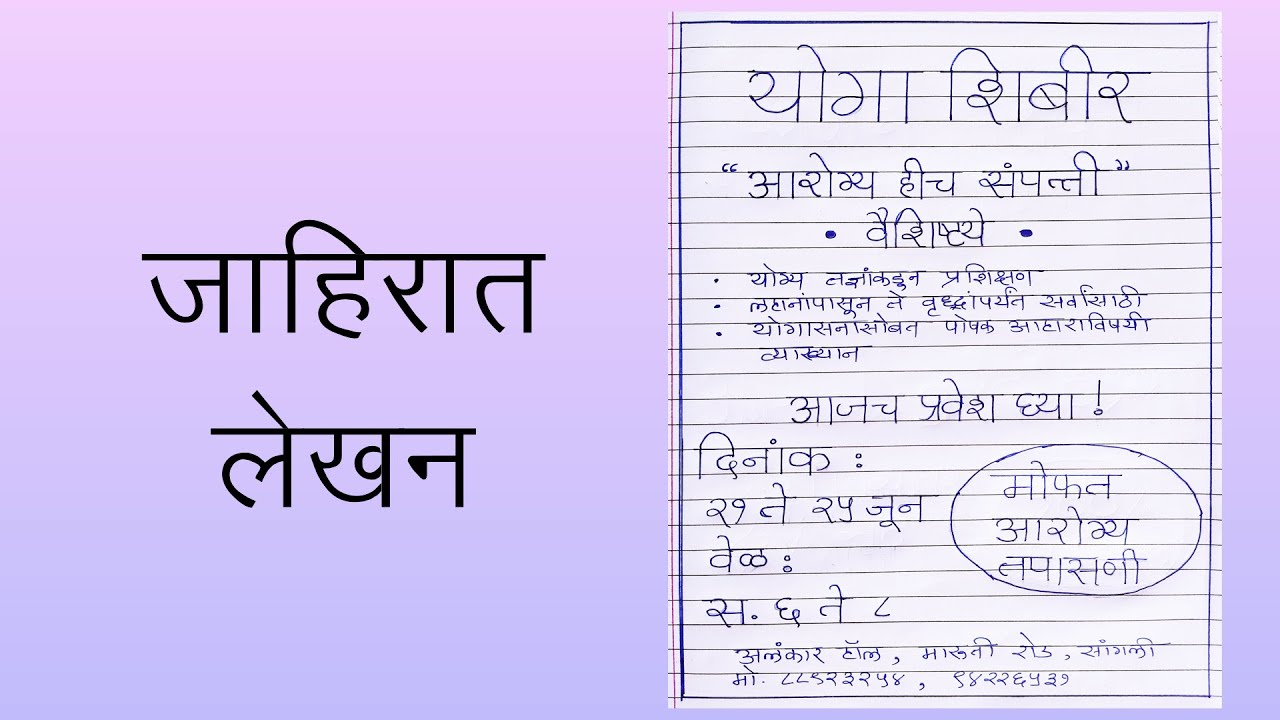 जाहिरात
लेखन
योगा शिबीर
“आरोग्य हीच संपत्ती”
• वैशिष्ट्ये •
• योग्य तज्ञांकडून प्रशिक्षण
• लहानांपासून ते वृद्धांपर्यंत सर्वांसाठी
• योगासनासोबत पोषक आहाराविषयी
व्याख्यान
आजच प्रवेश घ्या !
दिनांक :
२१ ते २५ जून
वेळ :
स. ६ ते ८
मोफत
आरोग्य
तपासणी
अलंकार हॉल, मारूती रोड, सांगली
मो. ८८५२३२५४, ९४२२६५३१